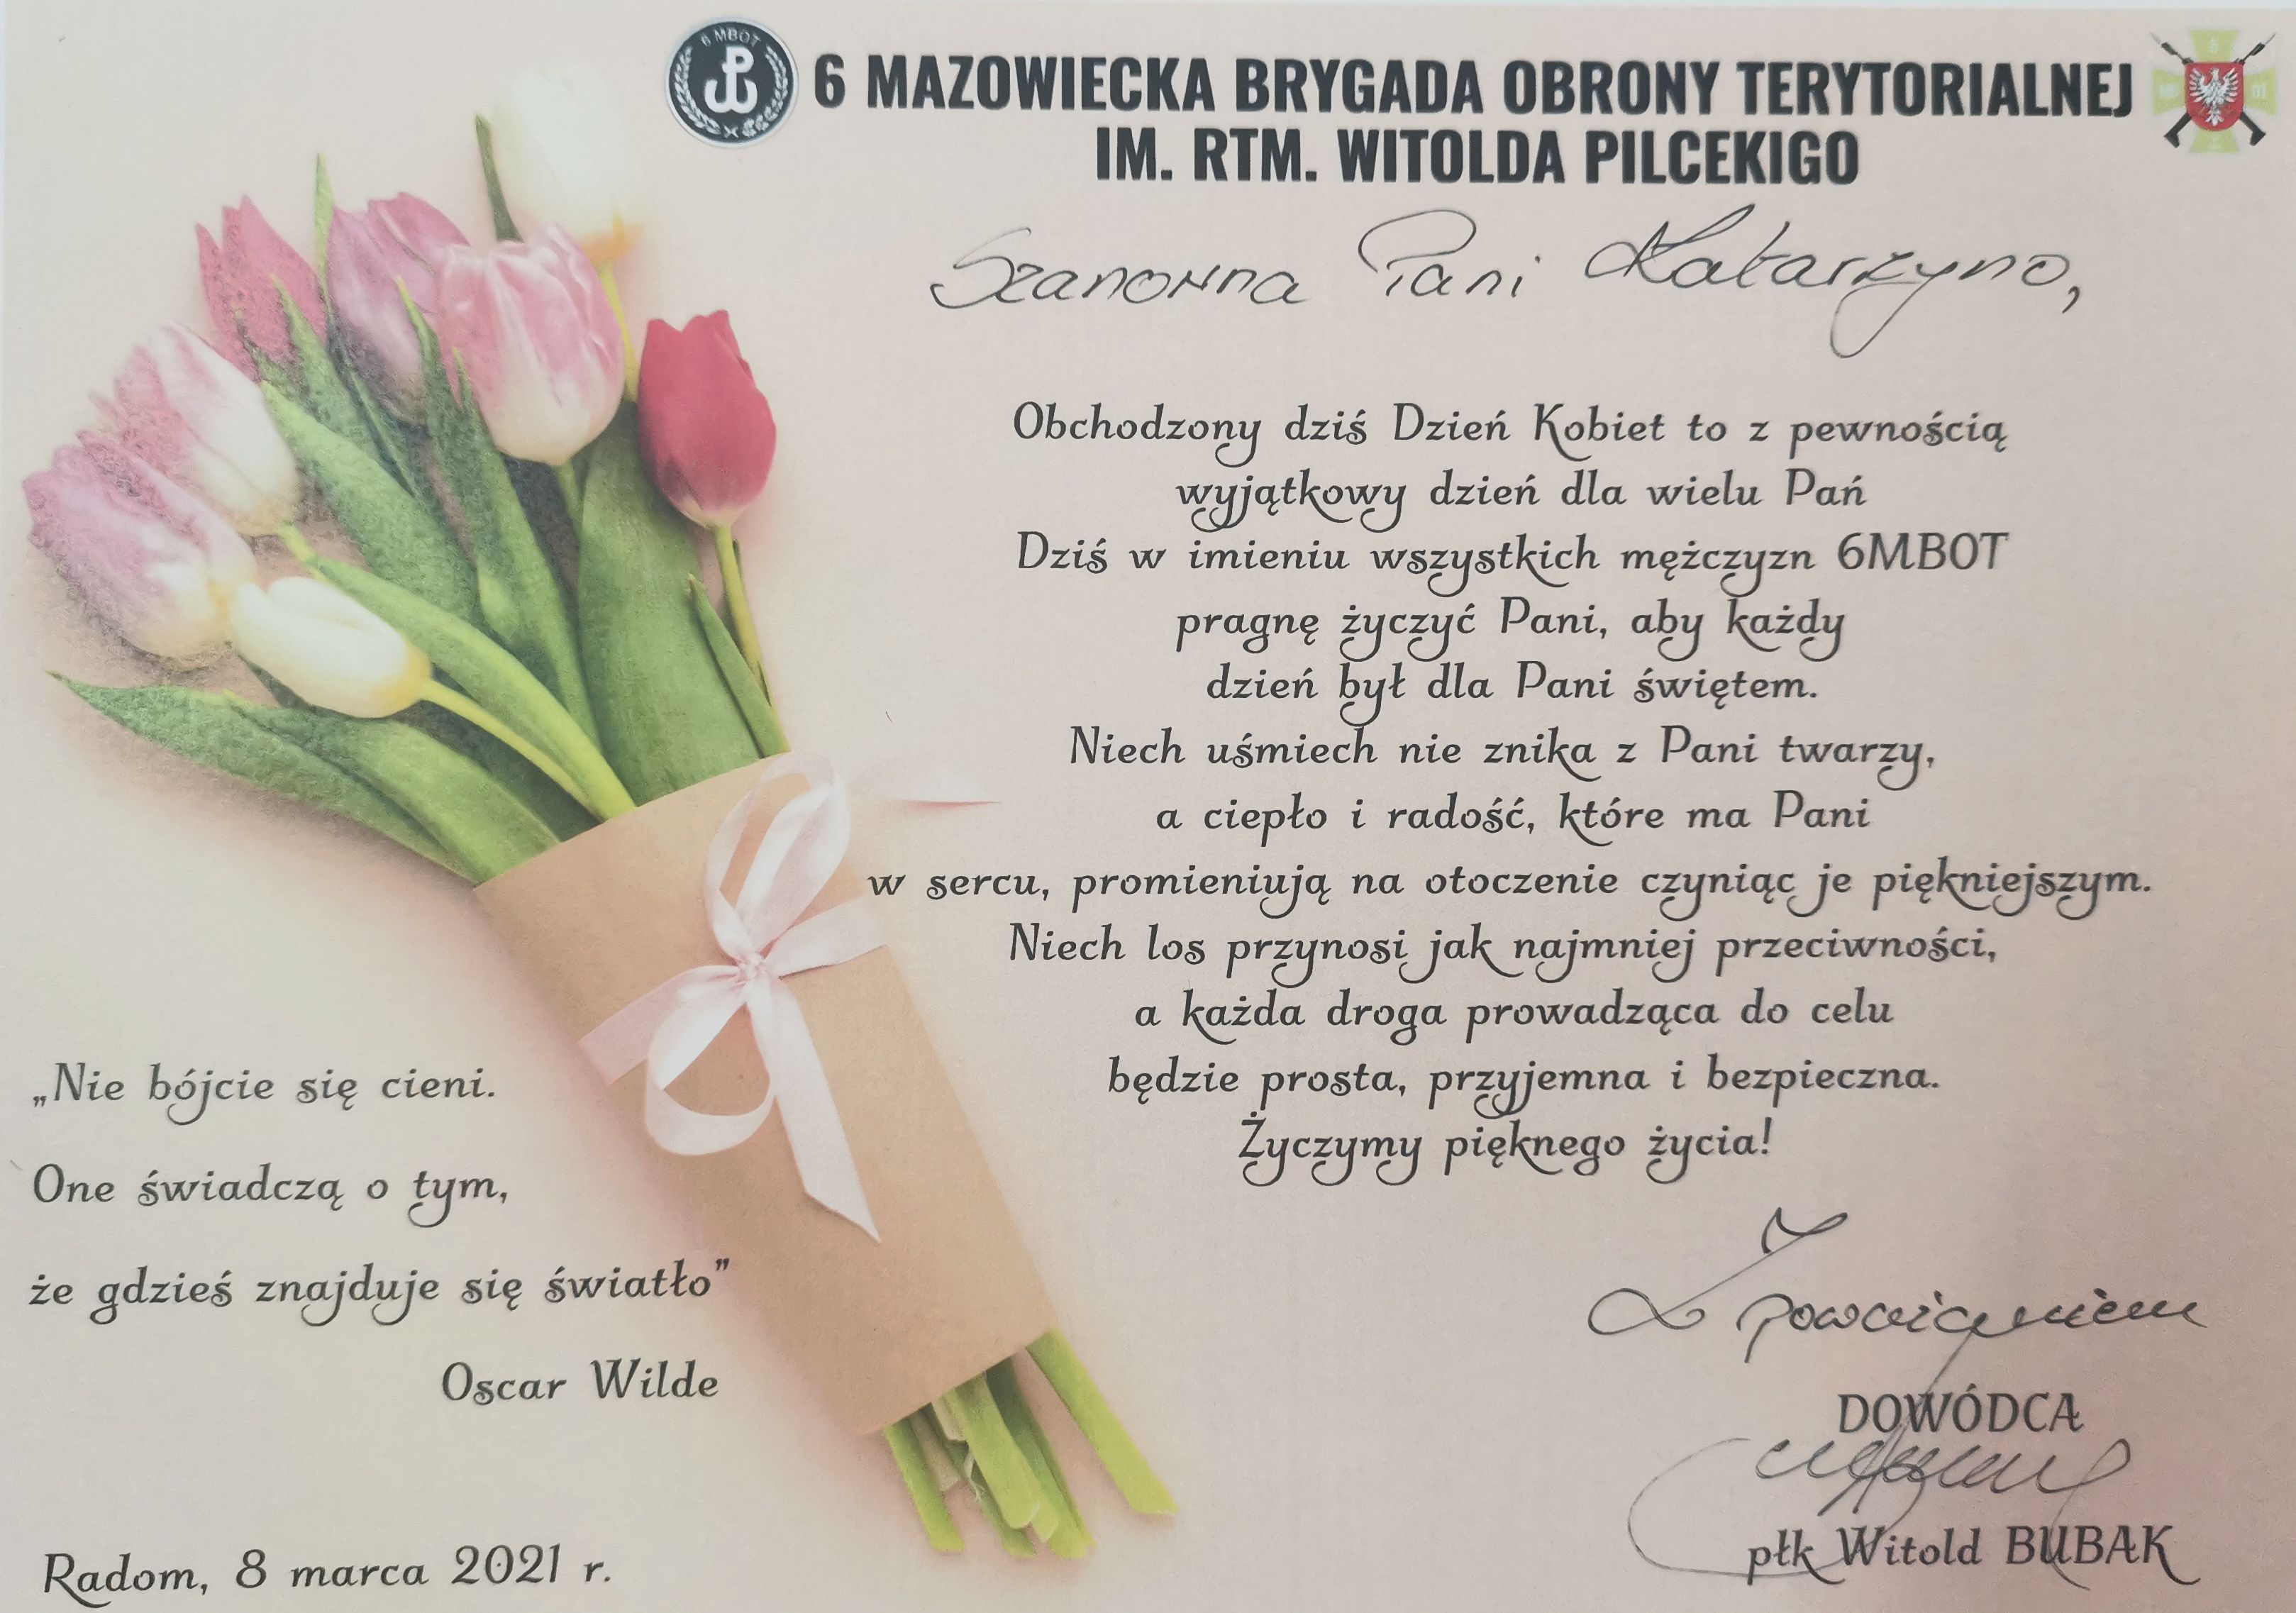 6 MBOT
6 MAZOWIECKA BRYGADA OBRONY TERYTORIALNEJ
IM. RTM. WITOLDA PILCEKIGO
Szanowna Pani Katarzyno,
Obchodzony dziś Dzień Kobiet to z pewnością
wyjątkowy dzień dla wielu Pań
Dziś w imieniu wszystkich mężczyzn 6MBOT
pragnę życzyć Pani, aby każdy
dzień był dla Pani świętem.
Niech uśmiech nie znika z Pani twarzy,
a ciepło i radość, które ma Pani
w sercu, promieniują na otoczenie czyniąc je piękniejszym.
Niech los przynosi jak najmniej przeciwności,
a każda droga prowadząca do celu
będzie prosta, przyjemna i bezpieczna.
Życzymy pięknego życia!
„Nie bójcie się cieni.
One świadczą o tym,
że gdzieś znajduje się światło”
Oscar Wilde
Radom, 8 marca 2021 r.
Z poważaniem
DOWÓDCA
płk Witold BUBAK